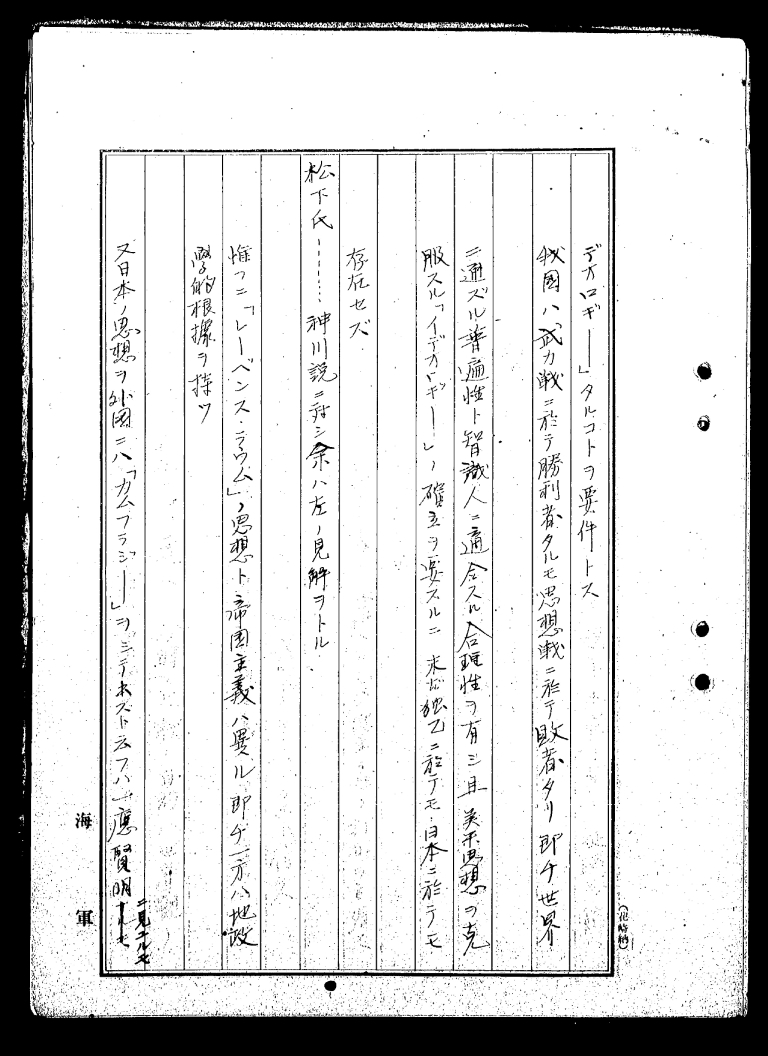 デオロギー」タルコトヲ要件トス
我国ハ、武力戦ニ於テ勝利者タルモ思想戦ニ於テ敗者タリ 即チ世界
ニ通ズル普遍性ト智識人ニ適合スル合理性ヲ有シ且 英米思想ヲ克
服スル「イデオロギー」ノ確立ヲ要スルニ 未ダ独乙ニ於テモ・日本ニ於テモ
存在セズ
松下氏……… 神川説ニ対シ余ハ左ノ見解ヲトル.
惟フニ「レーベンス・ラウム」ノ思想ト帝国主義ハ異ル 即チ一方ハ地政
学的根拠ヲ持ツ
又日本ノ思想ヲ外国ニハ「カムフラジー」ヲシテ出スト云フハ一応賢明
ニ見ユルモ
海軍